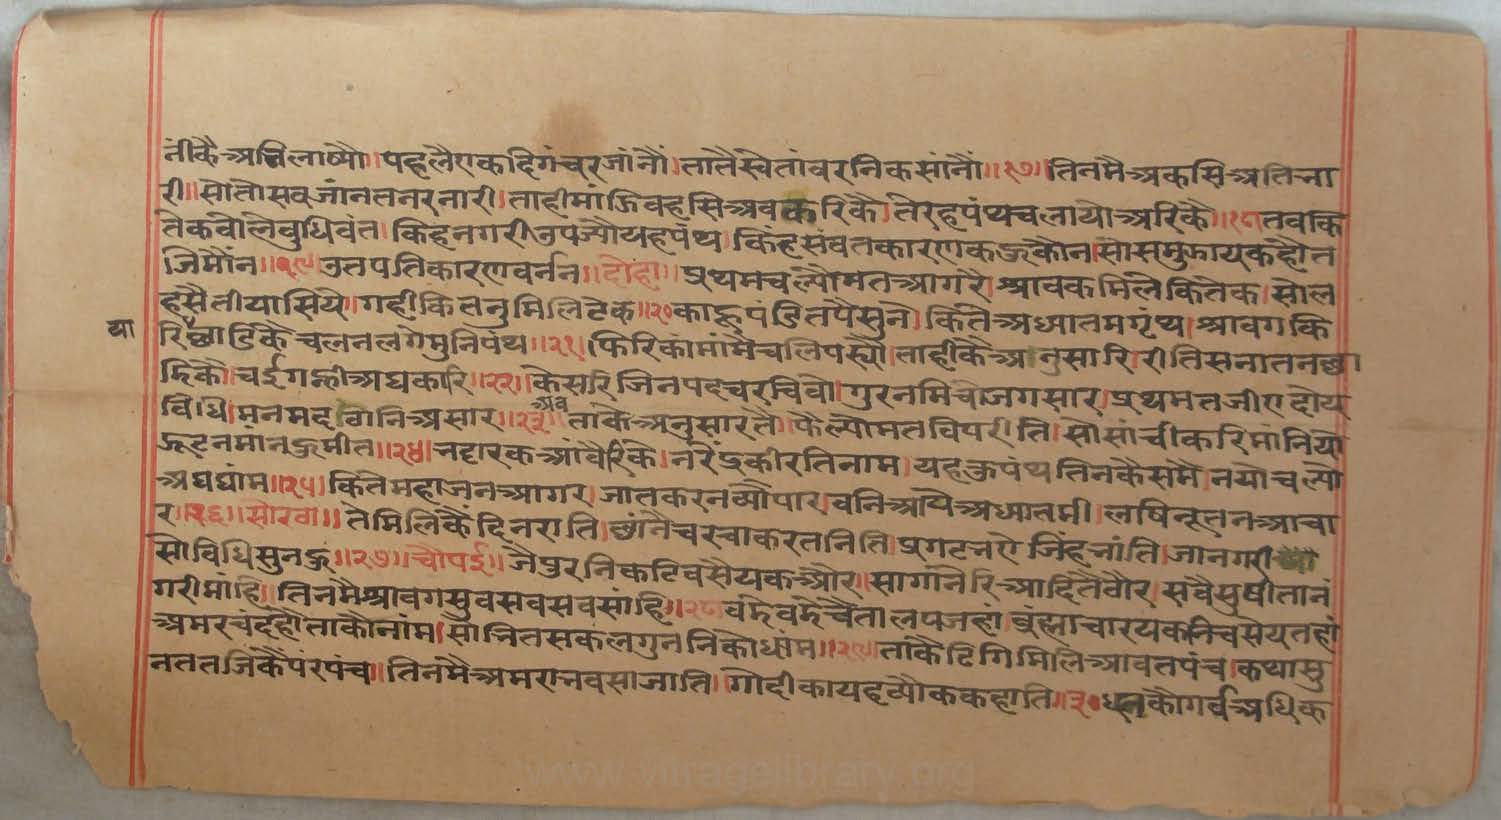 नीकै अति लाष्यौ॥ पहलै एक दिगंबर जांनौं। तातै स्वेतांवर निकसांनौं॥१७॥ तिनमै अकसि अति भा
री॥ सोतो सव जांनत नरनारी। ताही मांझि वहसि अव करिकै। तेरहपंथ चलायो अरिकै॥१८॥ तव कि
तेक वोले वुधिवंत। किह नगरी उपज्यौ यह पंथ। किंह संवत कारण कऊ कौन। सो समुझाय कहौ त
जि मौंन॥१९॥ उतपति कारण वर्नन॥ दोहा॥ प्रथम चल्यौ मत आगरै। श्रावक मिले कितेक। सोल
हसै तीयासिये। गही कितनु मिलि टेक॥२०॥ काहू पंडितपै सुने। कितै अध्यातम ग्रंथ। श्रावग कि
या
रिछाडिकै चलन लगे मुनिपंथ॥२१॥ फिरि कामांमै चलि पस्यौ। ताहीकै अनुसारि। रीति सनातन छा
दिकै। चई गही अघकारि॥२२॥ केसरि जिनपद चरचिवो। गुर नमिवो जगसार। प्रथम तजी ए दोय
विधि। मन मद ठांनि असार॥२३॥ ताकै अनुसारतै। फैल्यौ मत विपरीति। सो सांची करि मांनियो
अव
झूठ न मांनहु मीत॥२४॥ भट्टारक आंवैरिके। नरेंद्रकीरति नाम। यह कुपंथ तिनकै समै। नयो चल्यो
अघधांम॥२५॥ किते महाजन आगरै। जात करन व्यौपार। वनि आयै अध्यातमी। लषि नूतन आचा
र॥२६॥ सोरठा॥ ते मिलिकैं दिनराति। छांनै चरचा करत निति। प्रगट भए जिंह भांति। जा नगरी
सो विधि सुनहु॥२७॥ चौपई॥ जैपुर निकटि वसै यक और। सागांनैरि आदितै ठौर। सवै सुषी ता नं
गरी मांहि॥ तिनमै श्रावग सुवस वसांहि॥२८॥ वडे वडे चैताल प जहां। ब्रंह्मचारय क निवसेय तहां
अमरचंद हो ताकौ नांम। सोभित सकल गुननिको धांम॥२९॥ ताकै ढिगि मिलि आवत पंच। कथा सु
नत तजिकैं परपंच॥ तिनमै अमरा भवसा जाति। गोदीका यह व्यौक कहाति॥३०॥ धनकौ गर्व अधिक